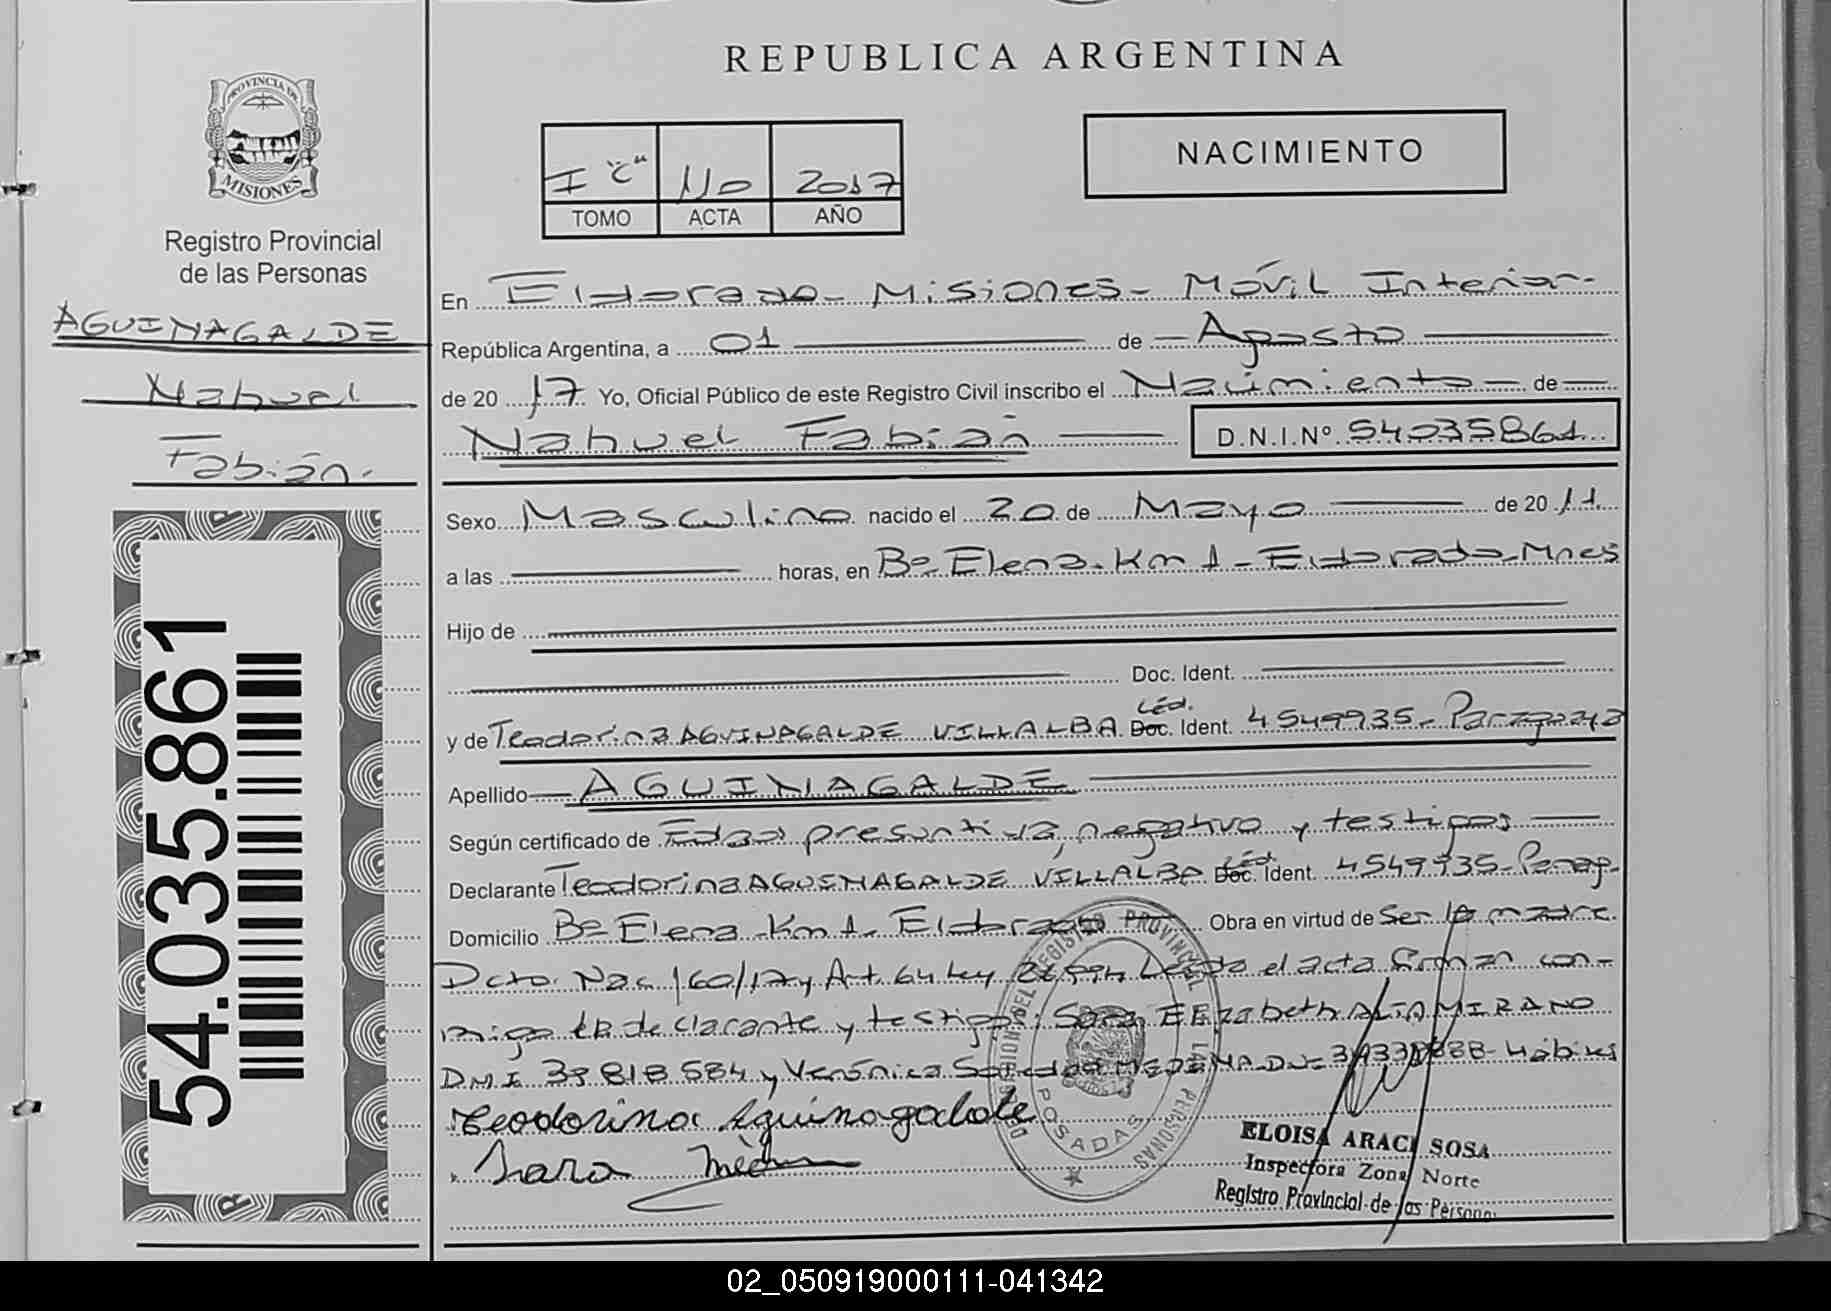 REPUBLICA ARGENTINA
PROVINCIA DE
MISIONES
Registro Provincial
de las Personas
AGUINAGALDE
Nahuel
Fabián.
54.035.861
I "C" 110 2017
TOMO ACTA AÑO
NACIMIENTO
En Eldorado - Misiones - Móvil Interior.-
República Argentina, a 01 de Agosto
de 20 17 Yo, Oficial Público de este Registro Civil inscribo el Nacimiento de
Nahuel Fabián D.N.I.Nº 54035861
Sexo Masculino nacido el 20 de Mayo de 20 11
a las horas, en Bº Elena - Km 1 - Eldorado - Mnes
Hijo de
Doc. Ident.
y de Teodorina AGUINAGALDE VILLALBA Céd. Doc. Ident. 4549935 - Paraguaya
Apellido AGUINAGALDE
Según certificado de Edad presuntiva, negativo y testigos
Declarante Teodorina AGUINAGALDE VILLALBA Céd. Doc. Ident. 4549935 - Parag.
Domicilio Bº Elena - Km 1 - Eldorado Obra en virtud de Ser la madre
Dcto. Nac 160/17 y Art. 64 Ley 26.994 Leída el acta firman con-
migo la declarante y testigos: Sara Elizabeth ALTAMIRANO
DNI 39818584 y Verónica Soledad MEDINA DNI Hábiles
Teodorina Aguinagalde
Sara
DEL REGISTRO PROVINCIAL DE LAS PERSONAS
POSADAS
ELOISA ARACI SOSA
Inspectora Zona Norte
Registro Provincial de las Personas
02_050919000111-041342